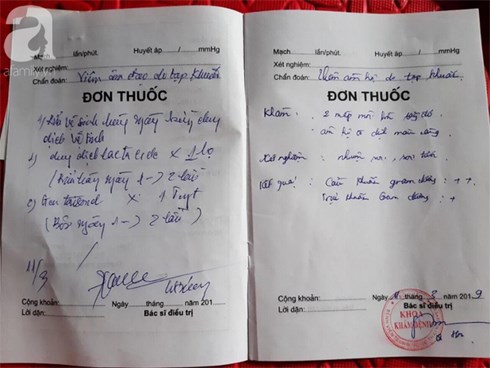 afamily
Mạch lần/phút. Huyết áp / mmHg
Xét nghiệm:
Chẩn đoán: Viêm âm đạo do tạp khuẩn
ĐƠN THUỐC
vệ sinh hàng ngày bằng dung
dịch vệ sinh
2) dung dịch lactacide x 1 lọ
ngày 1 -> 2 lần
x 1 tuyp
(Bôi ngày 1 -> 2 lần)
11/3
Cộng khoản: Ngày tháng năm 201
Lời dặn: Bác sĩ điều trị
Mạch lần/phút. Huyết áp / mmHg
Xét nghiệm:
Chẩn đoán: Viêm âm hộ do tạp khuẩn
ĐƠN THUỐC
Khám: 2 mép môi
âm hộ có dịch màu vàng
Xét nghiệm: nhuộm soi, soi tươi
Kết quả: Cầu khuẩn gram dương: ++
Trực khuẩn Gram dương: +
Cộng khoản: Ngày tháng 3 năm 2019
Lời dặn: Bác sĩ điều trị
KHOA
KHÁM BỆNH